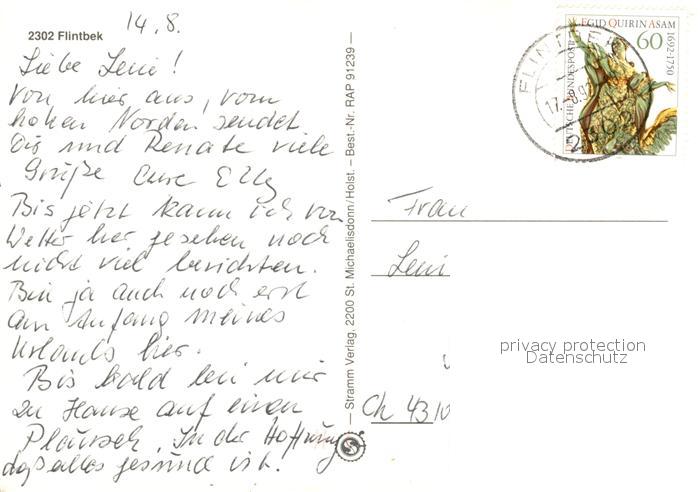 14.8.
2302 Flintbek
Liebe Leni!
Von hier aus, vom
hohen Norden sendet
Dir und Renate viele
Grüße Eure Elly
Bis jetzt kann ich von
Wetter her gesehen noch
nicht viel berichten.
Bin ja auch noch erst
am Anfang meines
Urlaubs hier.
Bis bald bei mir
zu Hause auf einen
Plausch. In der Hoffnung
daß alles gesund ist.
Stramm Verlag, 2200 St. Michaelisdonn/Holst. – Best.-Nr. RAP 91239 –
EGID QUIRIN ASAM
1692-1750
60
DEUTSCHE BUNDESPOST
FLINTBEK
17.-8.92
2302
Frau
Leni
privacy protection
Datenschutz
Ch 4310